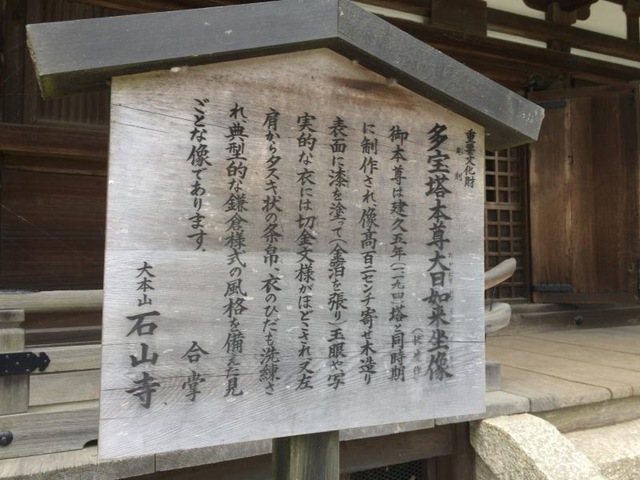 重要文化財
彫刻
多宝塔本尊大日如来坐像
(快慶作)
御本尊は建久五年(一一九四)塔と同時期
に制作され、像高百二センチ寄せ木造り
表面に漆を塗って(金泊を張り)玉眼や写
実的な衣には切金文様がほどこされ又左
肩からタスキ状の条帛、衣のひだも洗練さ
れ典型的な鎌倉様式の風格を備えた見
ごとな像であります。
合掌
大本山
石山寺